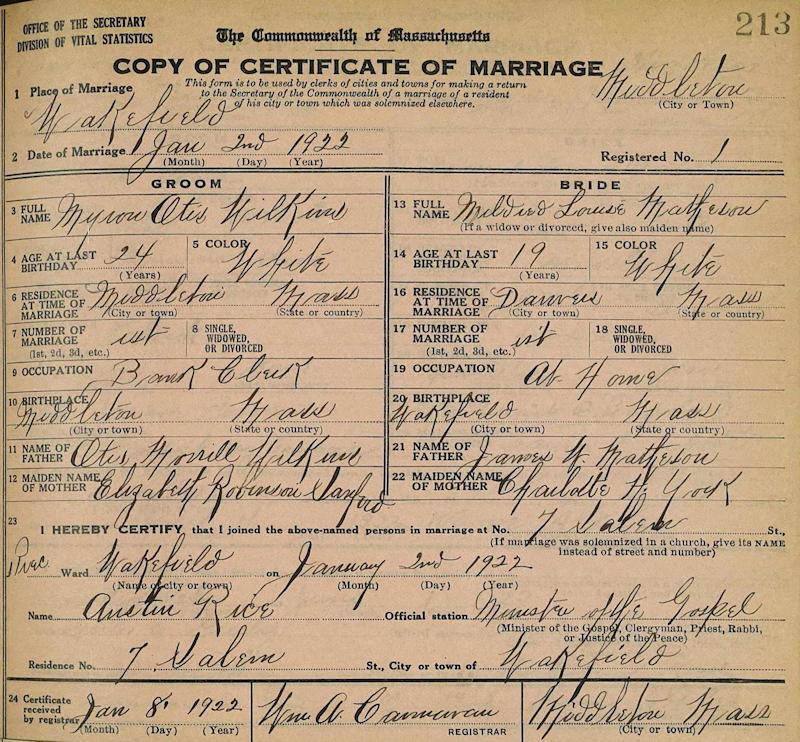 OFFICE OF THE SECRETARY
DIVISION OF VITAL STATISTICS
The Commonwealth of Massachusetts
213
COPY OF CERTIFICATE OF MARRIAGE
This form is to be used by clerks of cities and towns for making a return
to the Secretary of the Commonwealth of a marriage of a resident
of his city or town which was solemnized elsewhere.
Middleton
(City or Town)
1 Place of Marriage
Wakefield
2 Date of Marriage Jan 2nd 1922
(Month) (Day) (Year)
Registered No. 1
GROOM
3 FULL NAME Myron Otis Wilkins
4 AGE AT LAST BIRTHDAY 24
(Years)
5 COLOR
White
6 RESIDENCE AT TIME OF MARRIAGE Middleton Mass
(City or town) (State or country)
7 NUMBER OF MARRIAGE 1st
(1st, 2d, 3d, etc.)
8 SINGLE, WIDOWED, OR DIVORCED
9 OCCUPATION Bank Clerk
10 BIRTHPLACE
Middleton Mass
(City or town) (State or country)
11 NAME OF FATHER Otis Morrill Wilkins
12 MAIDEN NAME OF MOTHER Elizabeth Robinson Sanford
BRIDE
13 FULL NAME Mildred Louise Matheson
(If a widow or divorced, give also maiden name)
14 AGE AT LAST BIRTHDAY 19
(Years)
15 COLOR
White
16 RESIDENCE AT TIME OF MARRIAGE Danvers Mass
(City or town) (State or country)
17 NUMBER OF MARRIAGE 1st
(1st, 2d, 3d, etc.)
18 SINGLE, WIDOWED, OR DIVORCED
19 OCCUPATION At Home
20 BIRTHPLACE
Wakefield Mass
(City or town) (State or country)
21 NAME OF FATHER James W. Matheson
22 MAIDEN NAME OF MOTHER Charlotte H. York
23
I HEREBY CERTIFY that I joined the above-named persons in marriage at No. 7 Salem St.,
(If marriage was solemnized in a church, give its NAME
instead of street and number)
Prec. Ward Wakefield on January 2nd 1922
(Name of city or town) (Month) (Day) (Year)
Name Austin Rice Official station Minister of the Gospel
(Minister of the Gospel, Clergyman, Priest, Rabbi,
or Justice of the Peace)
Residence No. 7 Salem St., City or town of Wakefield
24 Certificate received by registrar Jan 8. 1922
(Month) (Day) (Year)
Wm A.
REGISTRAR
Middleton Mass
(City or town)